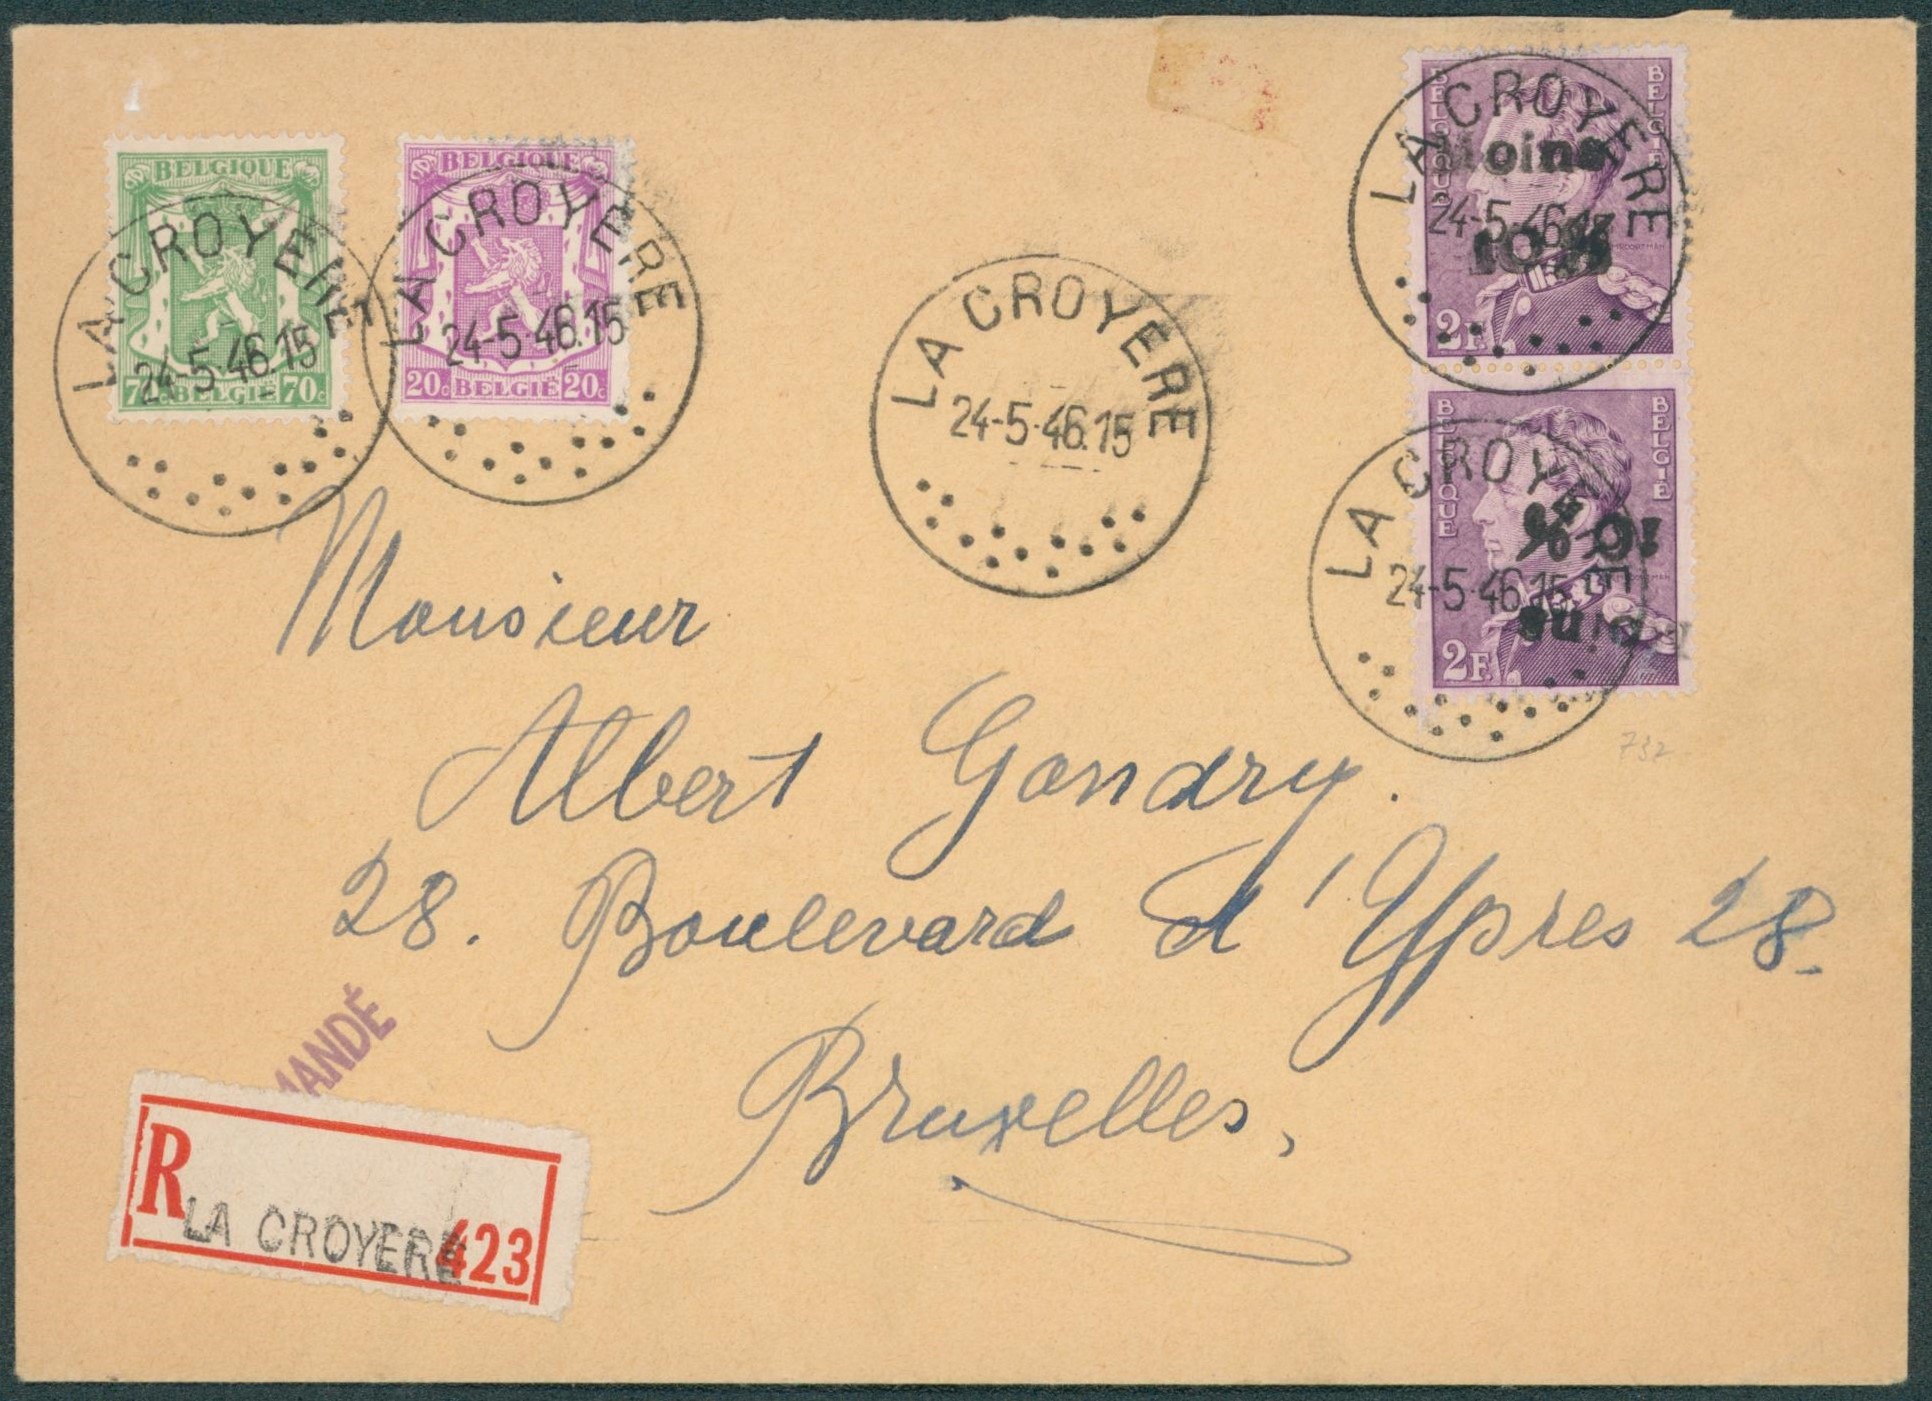 BELGIQUE
70c BELGIË 70c
LA CROYERE
24-5-46.15
BELGIQUE
20c BELGIË 20c
LA CROYERE
24-5-46.15
LA CROYERE
24-5-46.15
BELGIQUE
BELGIË
Moins
10 %
2F.
LA CROYERE
24-5-46.15
BELGIQUE
BELGIË
10 %
Moins
2F.
LA CROYERE
24-5-46.15
732
Monsieur
Albert Gondry.
28. Boulevard d'Ypres 28.
Bruxelles,
MANDÉ
R
LA CROYERE
423